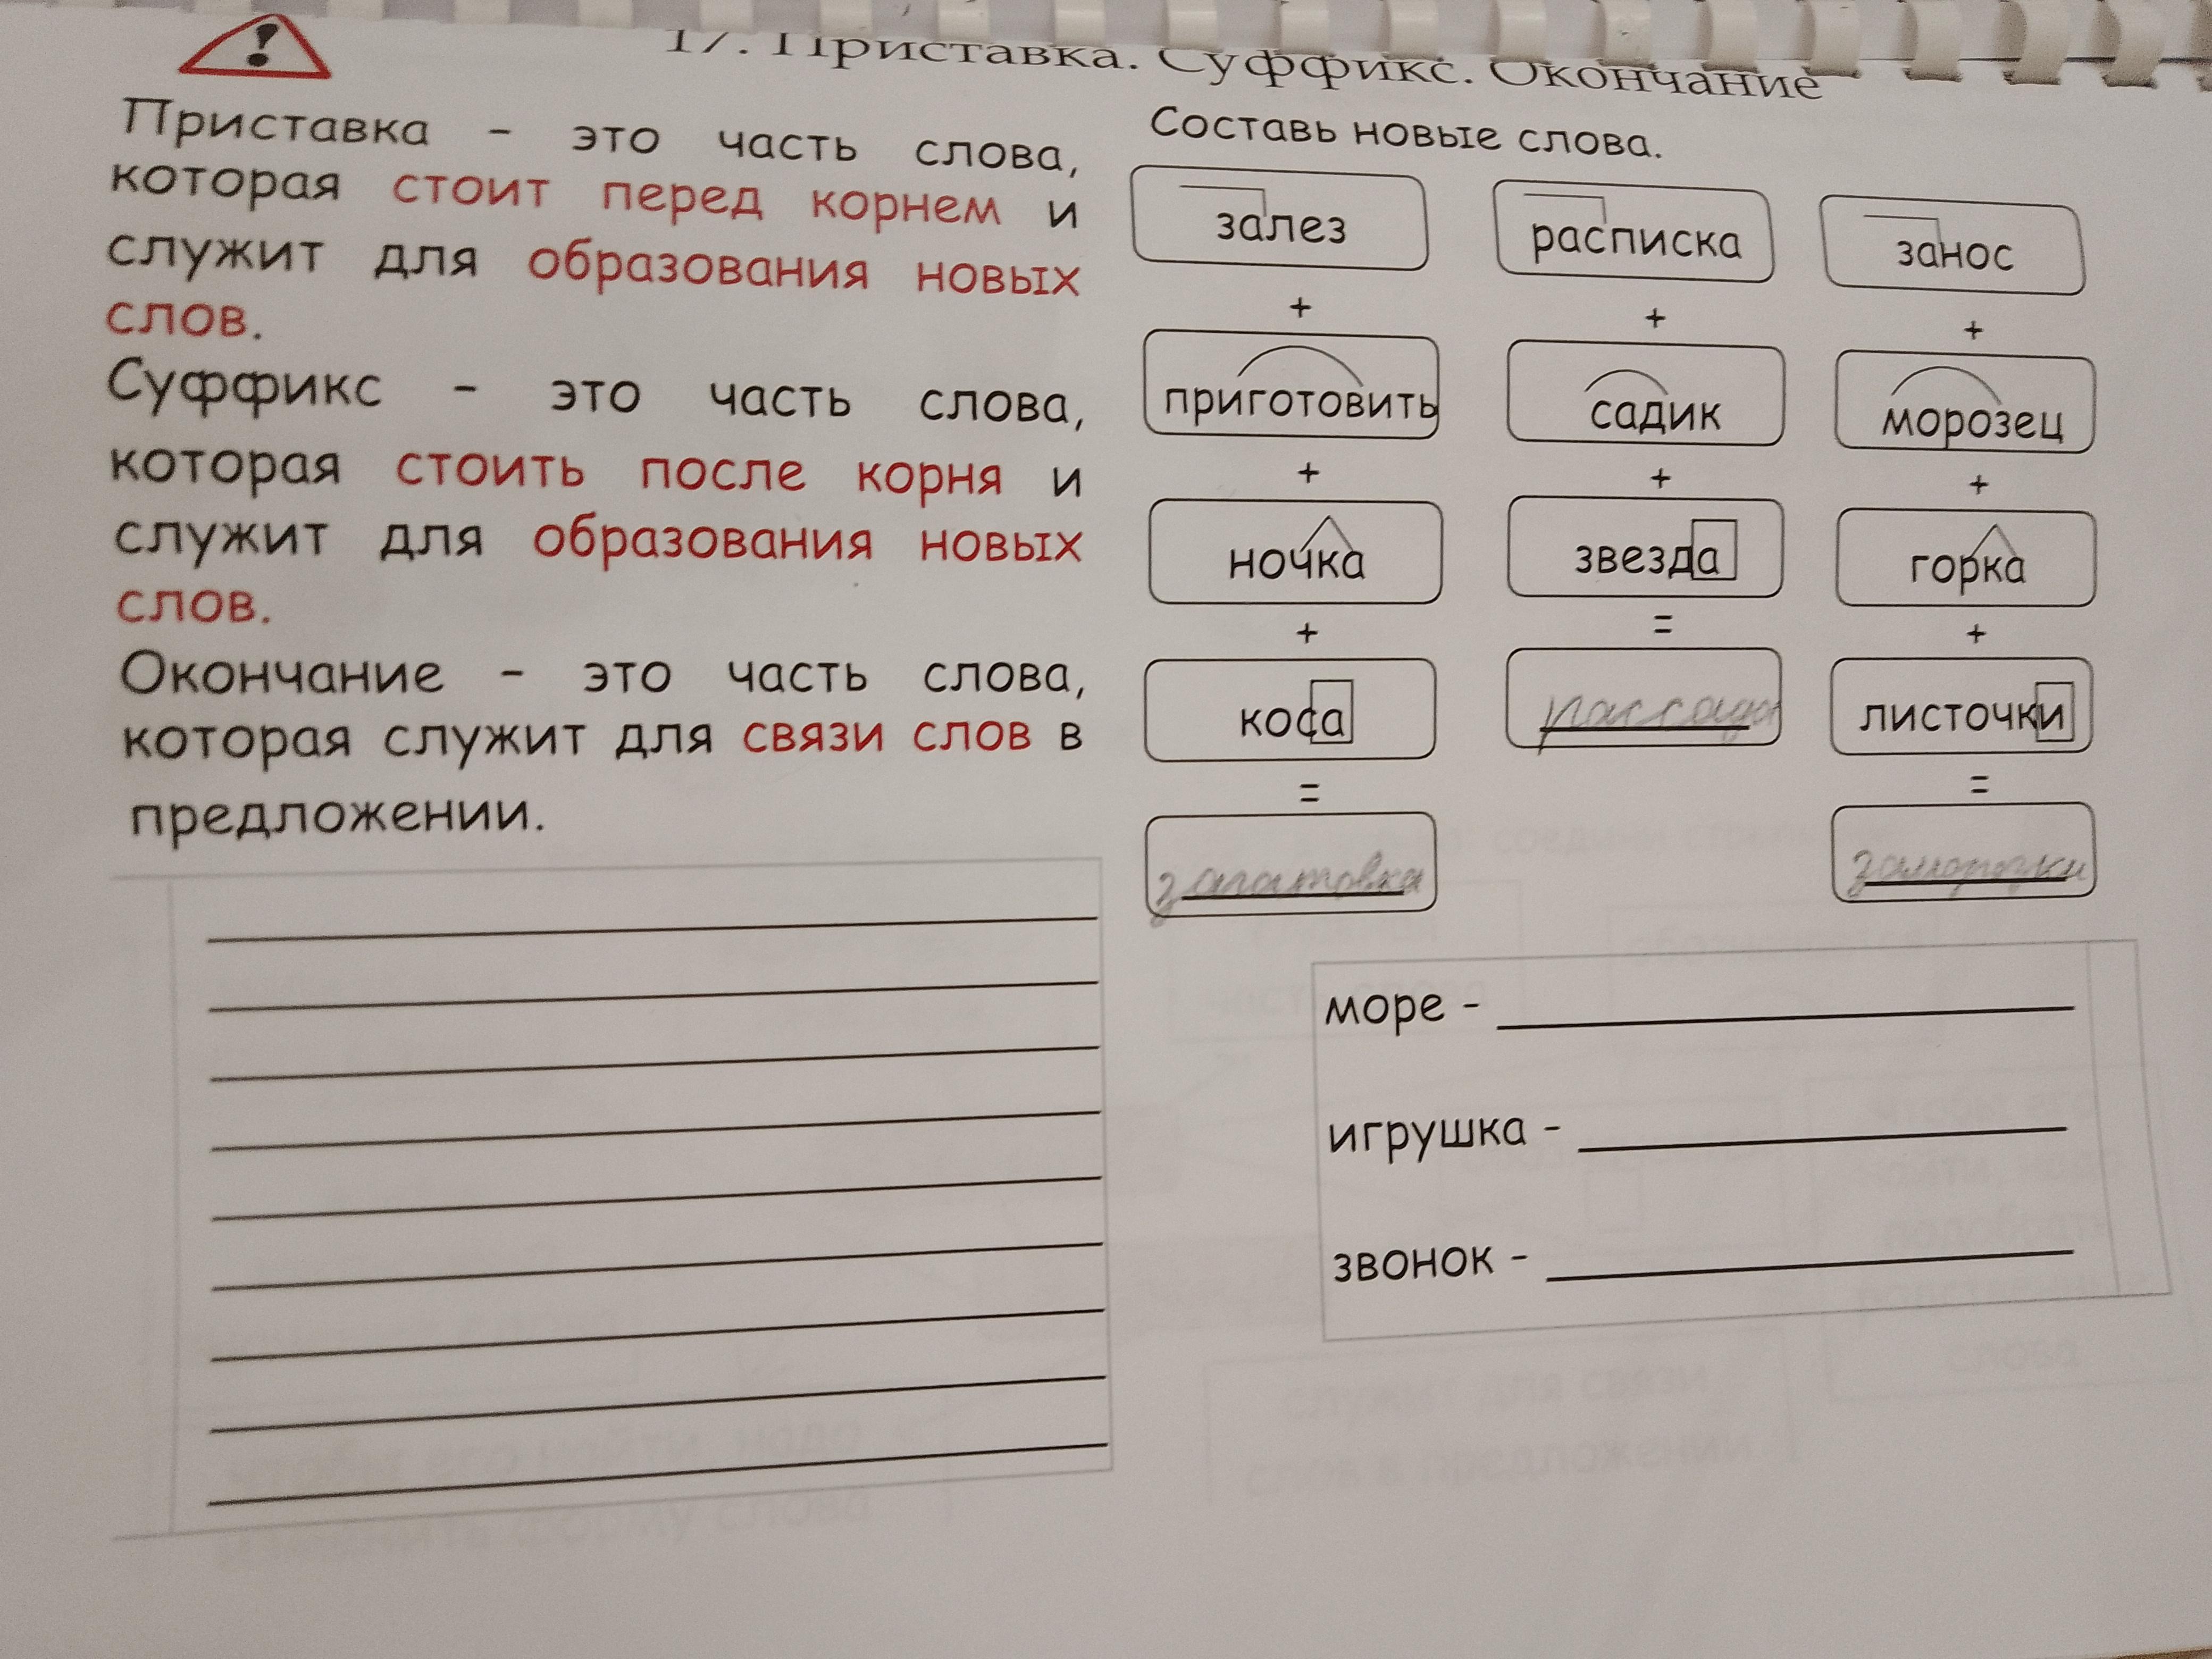 17. Приставка. Суффикс. Окончание
Приставка - это часть слова,
которая стоит перед корнем и
служит для образования новых
слов.
Суффикс - это часть слова,
которая стоить после корня и
служит для образования новых
слов.
Окончание - это часть слова,
которая служит для связи слов в
предложении.
Составь новые слова.
залез расписка занос
+ + +
приготовить садик морозец
+ + +
ночка звезда горка
+ = +
коса рассада листочки
= =
загатовка заморозки
море -
игрушка -
звонок -